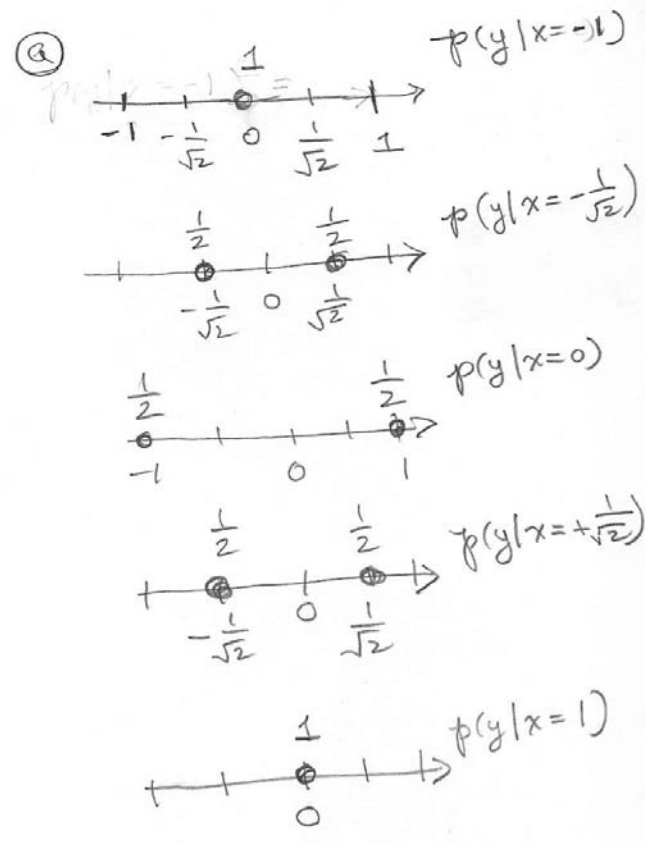 ⓐ
1 p(y|x=-1)
-1 -1/√2 0 1/√2 1
1/2 1/2 p(y|x=-1/√2)
-1/√2 0 1/√2
1/2 1/2 p(y|x=0)
-1 0 1
1/2 1/2 p(y|x=+1/√2)
-1/√2 0 1/√2
1 p(y|x=1)
0